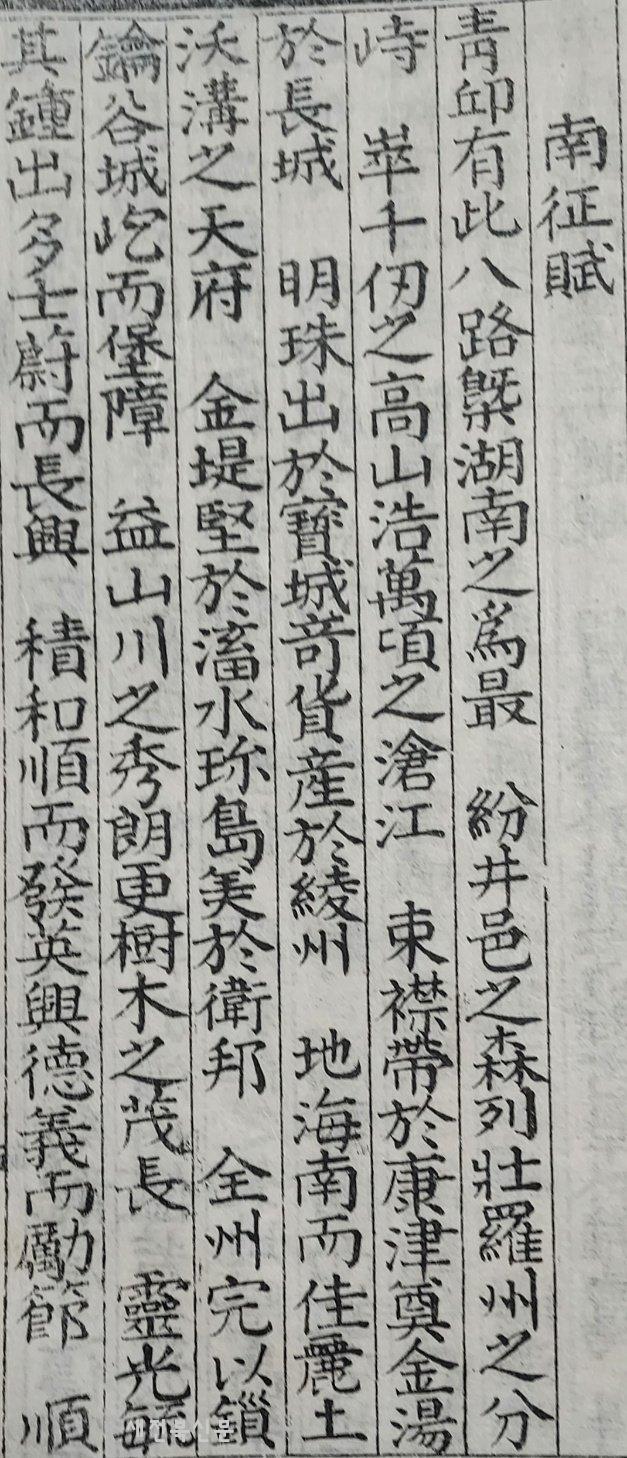 南征賦
青邱有此八路槩湖南之爲最 紛井邑之森列壯羅州之分
峙 崒千仞之高山浩萬頃之滄江 束襟帶於康津奠金湯
於長城 明珠出於寶城竒貨産於綾州 地海南而佳麗土
沃溝之天府 金堤堅於滀水珎島美於衛邦 全州完以鎖
鑰谷城屹而堡障 益山川之秀朗更樹木之茂長 靈光毓
其鍾出多士蔚而長興 積和順而發英興德義而勵節 順
새전북신문